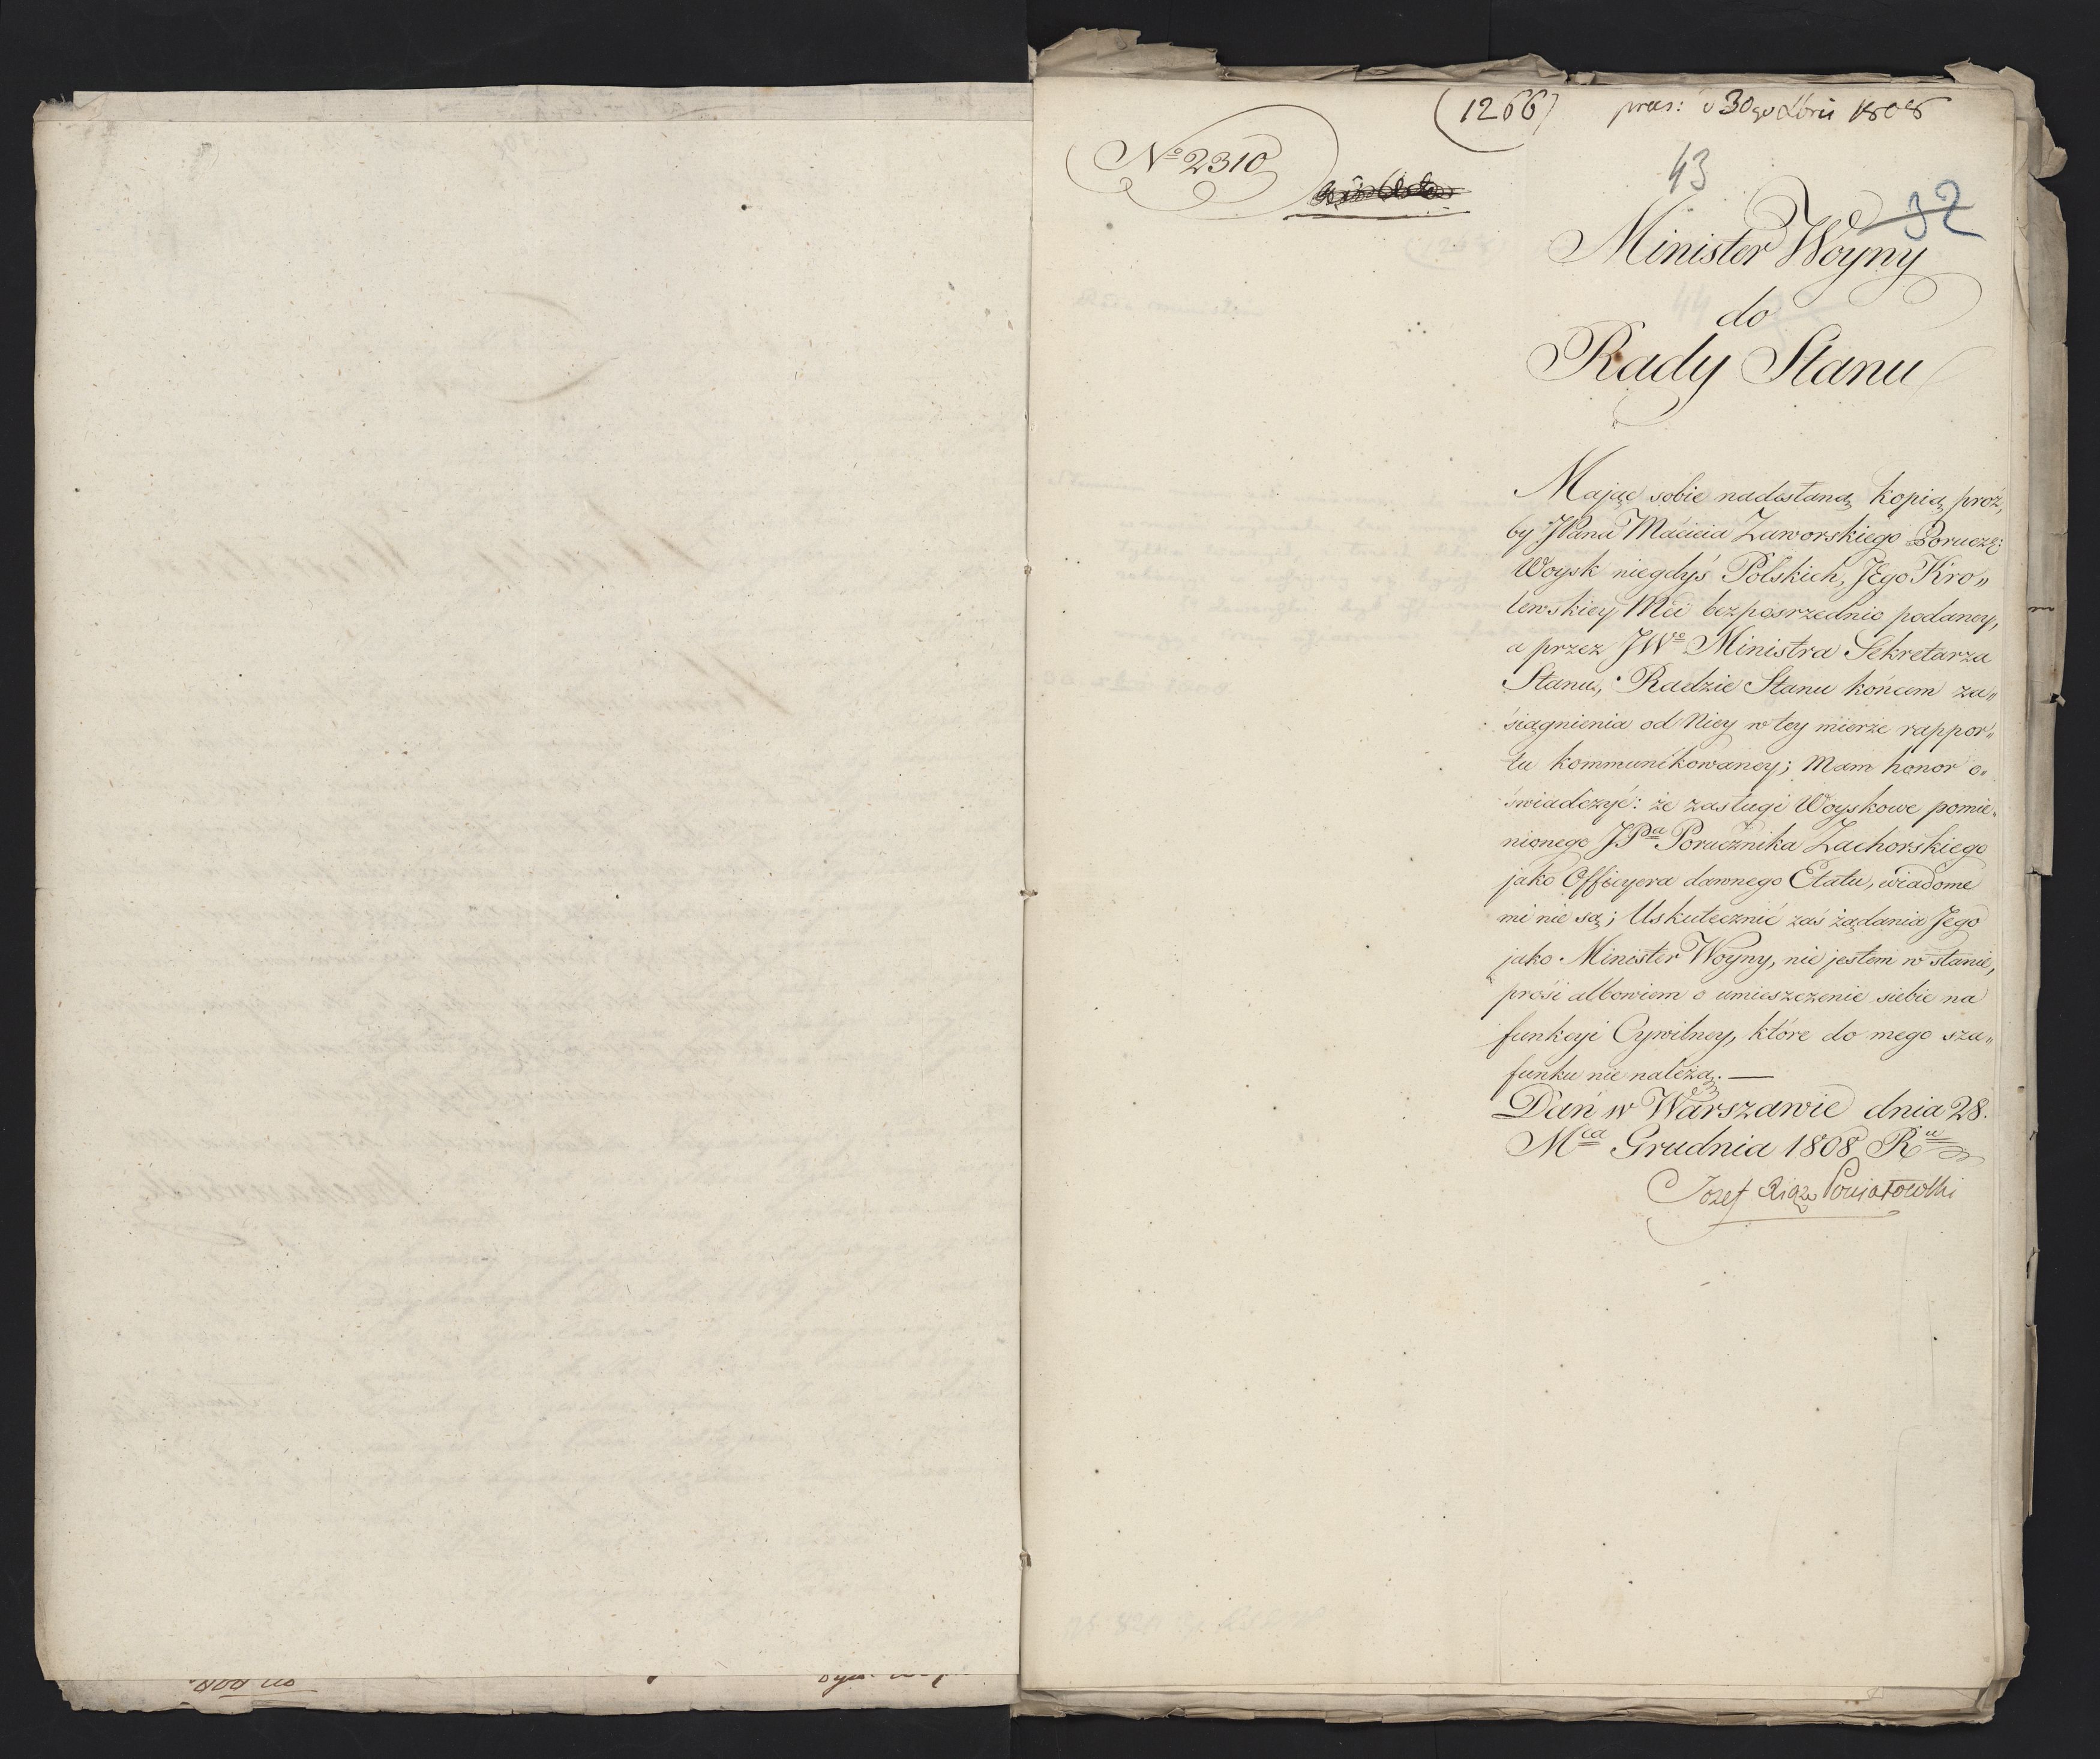 (1266) præs: d 30go Xbris 1808
No 2310
43
32
Minister Woyny
do
Rady Stanu
Mając sobie nadesłaną kopią proź„
by JPana Macieia Zaworskiego Porucz:
Woysk niegdyś Polskich, JEgo Kro„
lewskiey Mci bezposrzednio podaney,
a przez JWo Ministra Sekretarza
Stanu, Radzie Stanu końcem za„
siągnienia od Niey w tey mierze rappor„
tu kommunikowaney; Mam honor o„
świadczyć: że zasługi Woyskowe pomie„
nionego JPa Porucznika Zachorskiego
jako Officyera dawnego Etatu, wiadome
mi nie są; Uskutecznić zaś żądania Jego
jako Minister Woyny, nie jestem w stanie,
prosi albowiem o umieszczenie siebie na
funkcyi Cywilney, które do mego sza„
funku nie należą. —
Dań w Warszawie dnia 28.
Mca Grudnia 1808 Ru
Jozef Xiąze Poniatowski